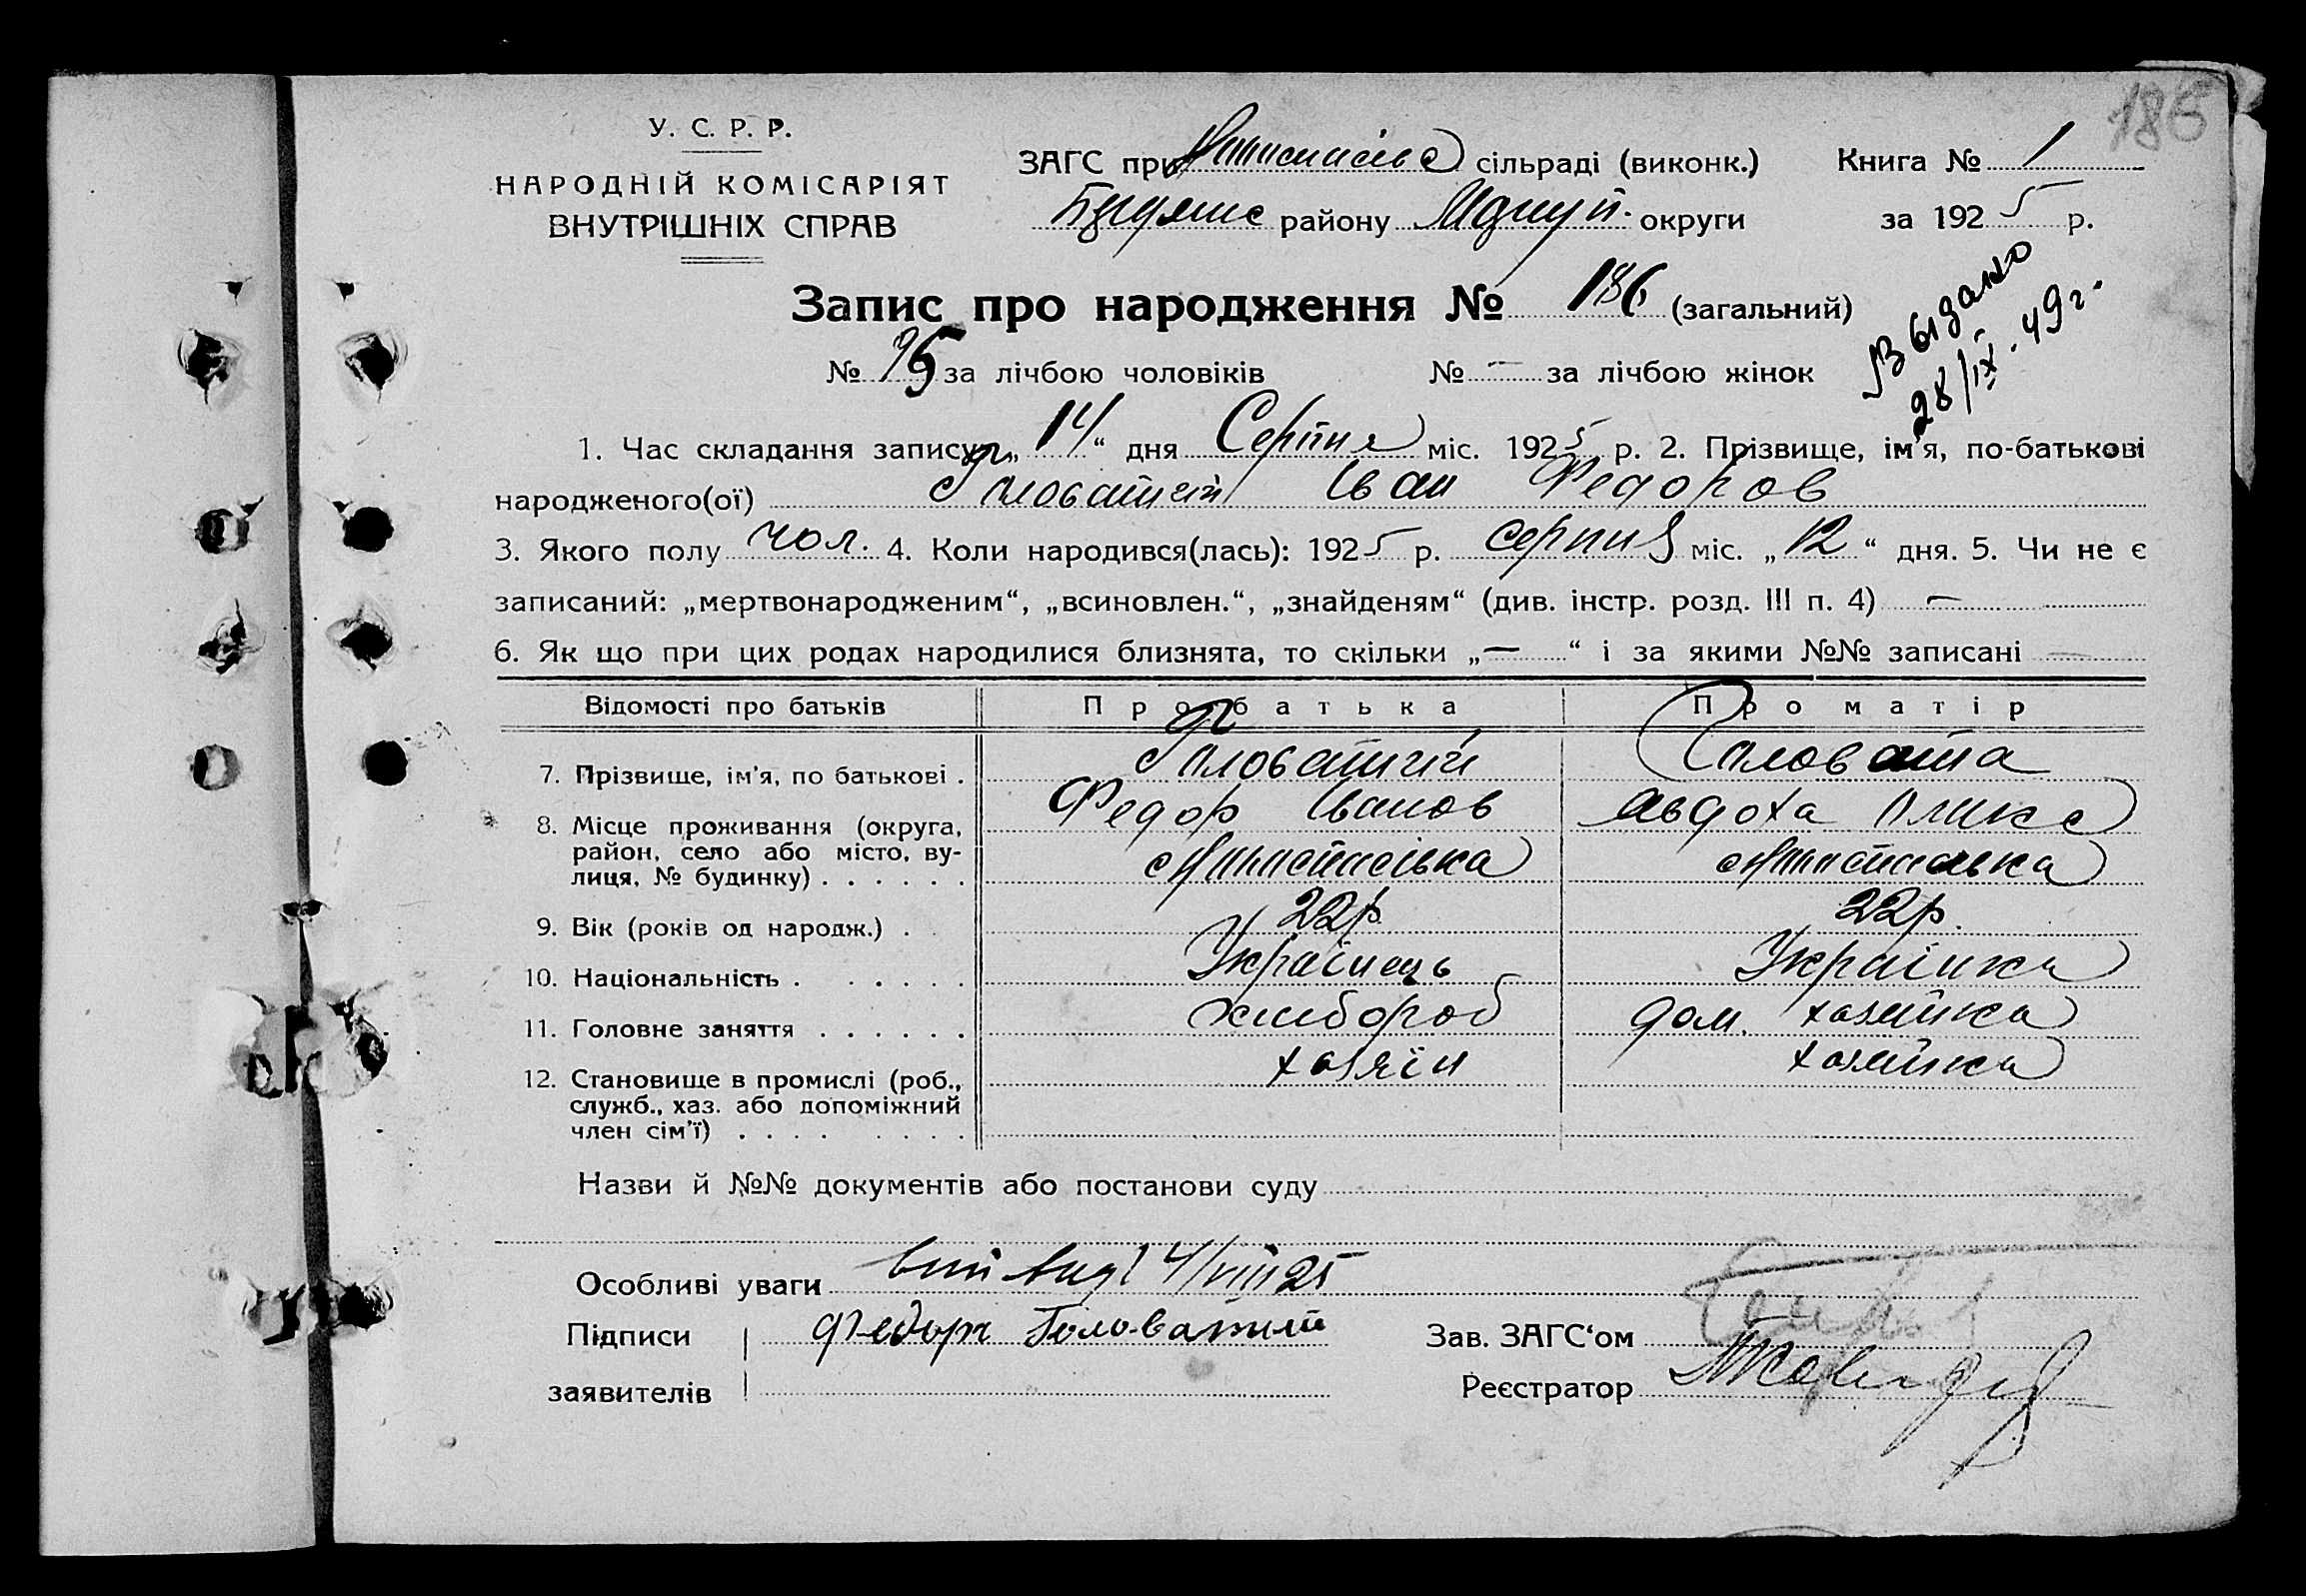 186
У. С. Р. Р.
НАРОДНІЙ КОМІСАРІЯТ
ВНУТРІШНІХ СПРАВ
ЗАГС при сільраді (виконк.) Книга № 1
району округи за 1925 р.
Запис про народження № 186 (загальний)
Выдано
28/IX. 49 г.
№ 95 за лічбою чоловіків № — за лічбою жінок
1. Час складання запису „14“ дня Серпня міс. 1925 р. 2. Прізвище, ім'я, по-батькові
народженого(ої) Головатий Іван Федоров
3. Якого полу чол. 4. Коли народився(лась): 1925 р. серпня міс. „12“ дня. 5. Чи не є
записаний: „мертвонародженим“, „всиновлен.“, „знайденям“ (див. інстр. розд. III п. 4) —
6. Як що при цих родах народилися близнята, то скільки „—“ і за якими №№ записані —
Відомості про батьків Про батька Про матір
7. Прізвище, ім'я, по батькові . Головатий Головата
Федор Іванов Авдоха
8. Місце проживання (округа,
район, село або місто, ву-
лиця, № будинку) . . . . . . Анастасівка Анастасівка
9. Вік (років од народж.) . 22 р. 22 р.
10. Національність . . . . . . Українець Українка
11. Головне заняття . . . . . . хлибороб дом. хозяйка
12. Становище в промислі (роб., хозяїн хозяйка
служб., хаз. або допоміжний
член сім'ї) . . . . . . . .
Назви й №№ документів або постанови суду
Особливі уваги 4/VIII 25
Підписи Федор Головатий Зав. ЗАГС‘ом
заявителів Реєстратор